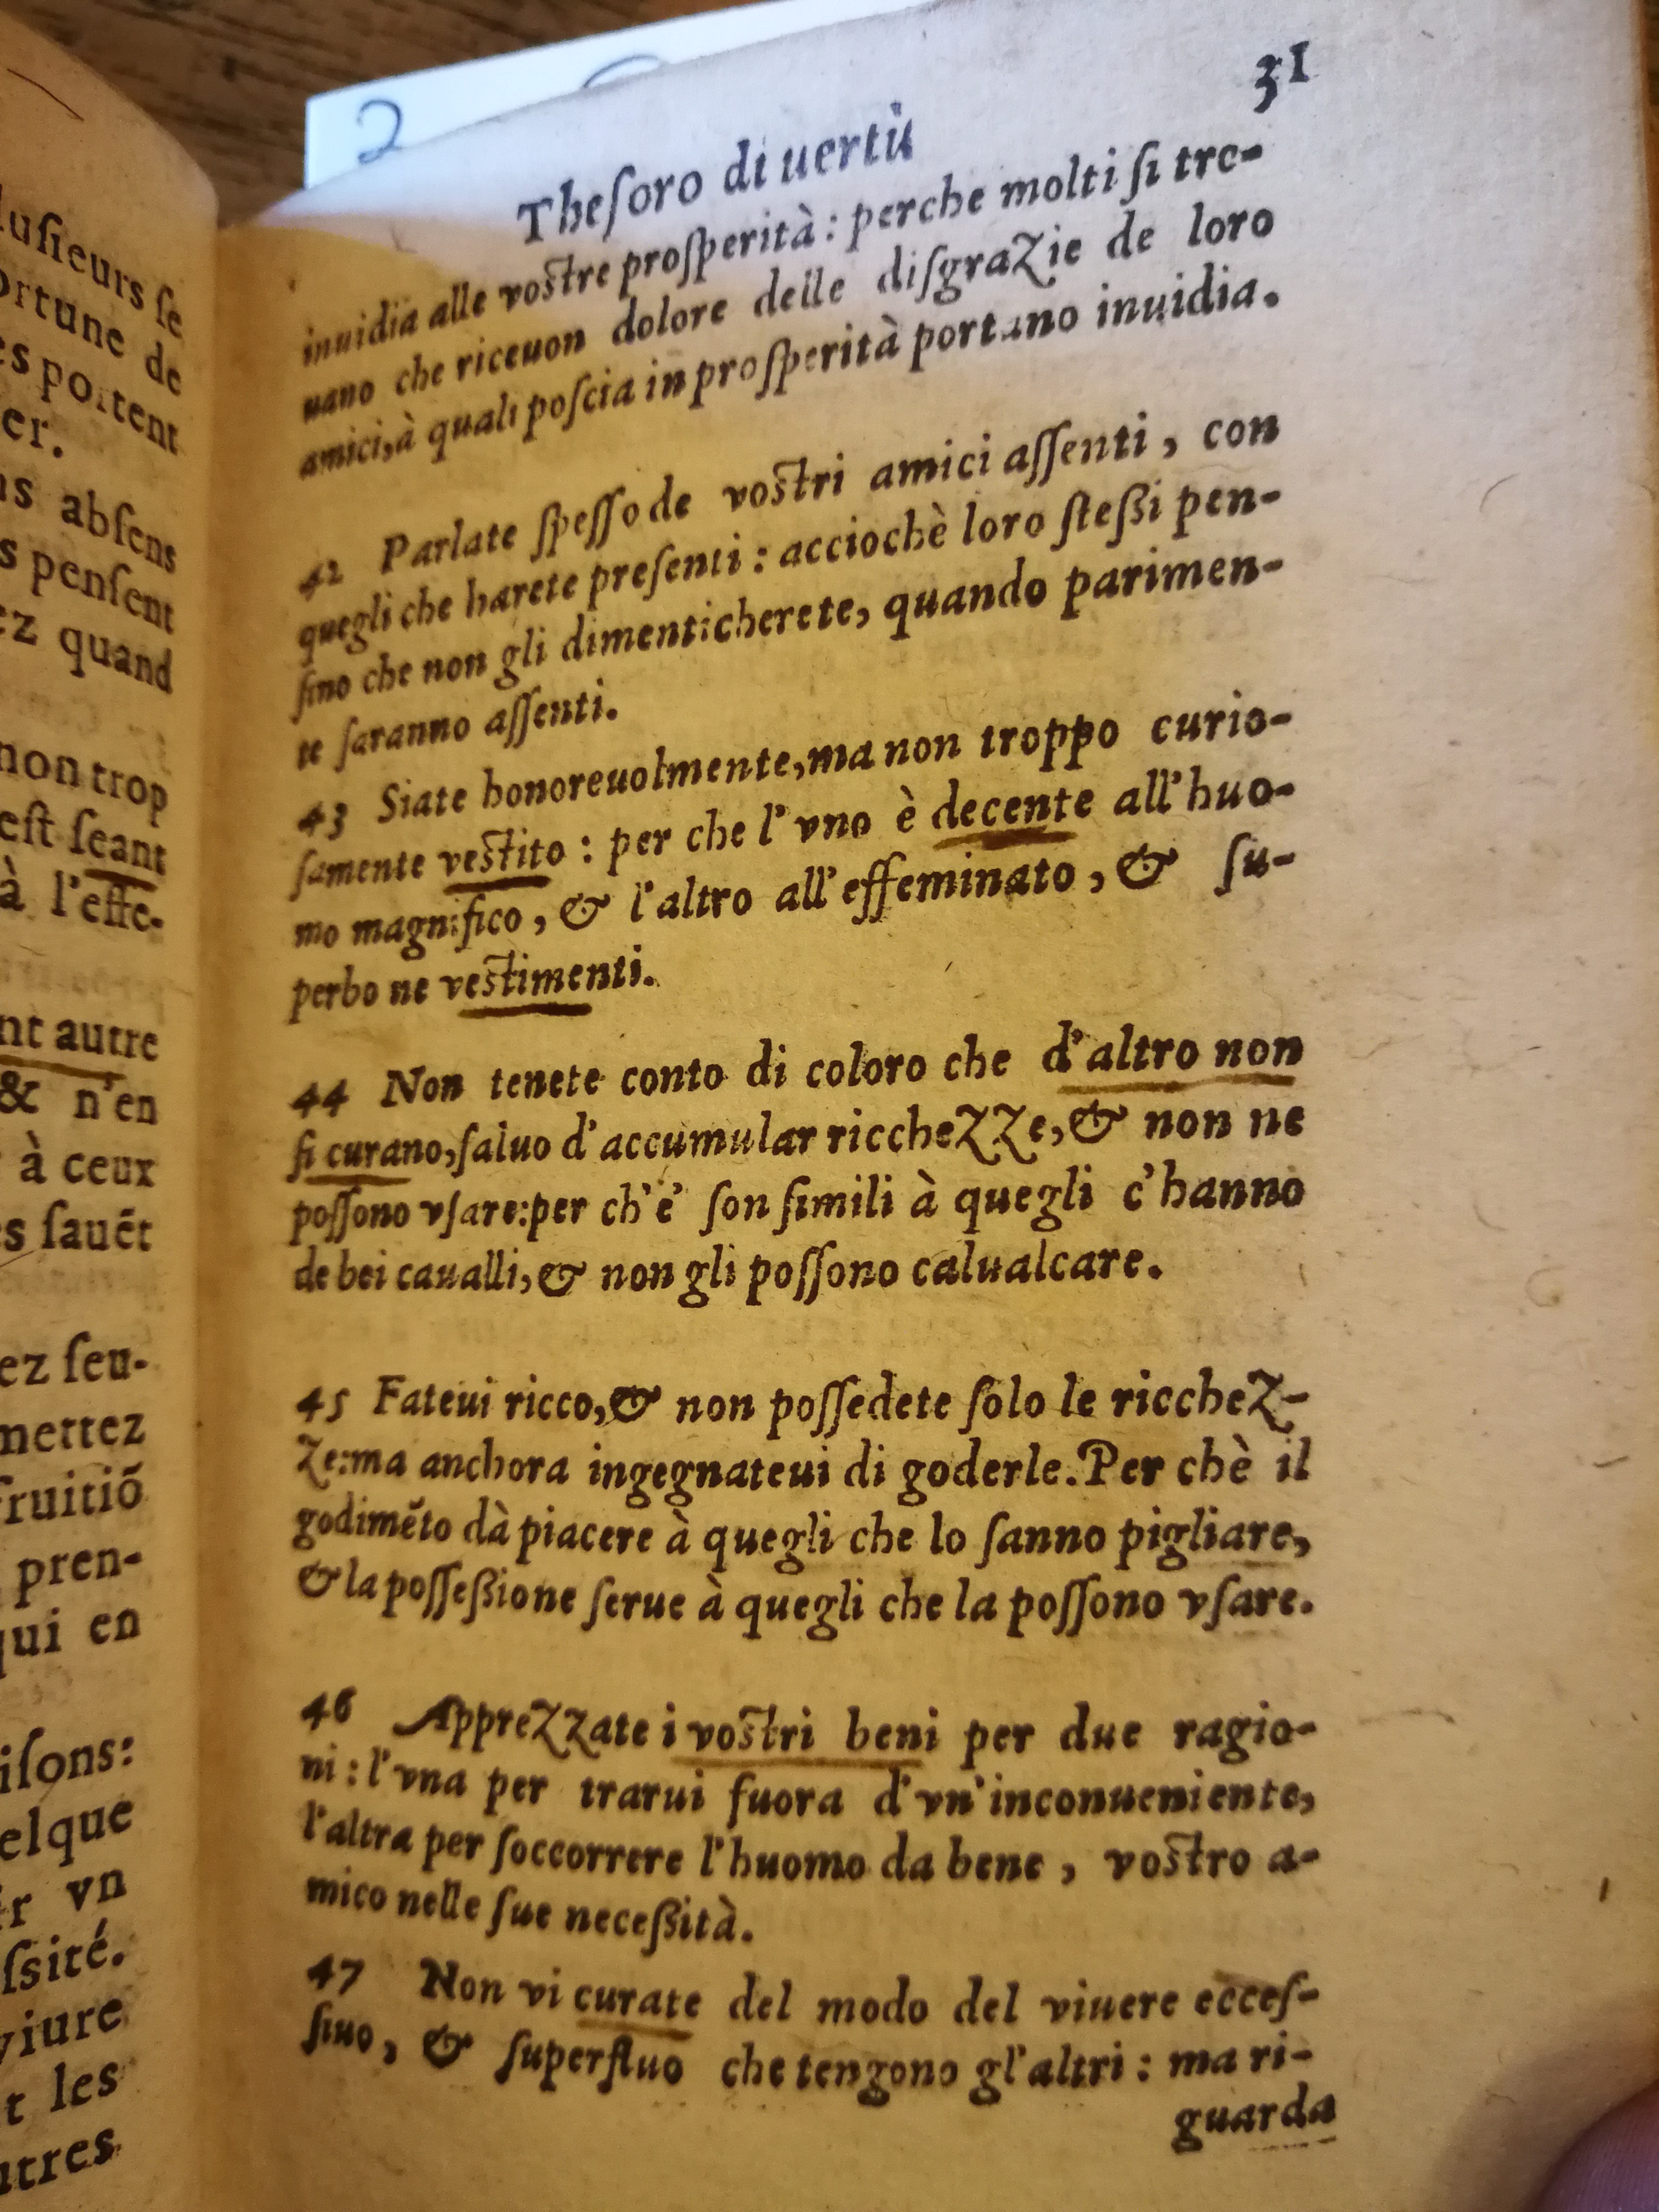 lusieurs se
ortune de
es portent
er.
ns absens
s pensent
ez quand
non trop
est seant
à l'effe-
nt autre
& n'en
à ceux
s sauẽt
ez seu-
mettez
fruitiõ
pren-
qui en
isons:
elque
ir vn
ssité.
viure
t les
utres
2
31
Thesoro di uertù
inuidia alle vostre prosperità: perche molti si tro-
uano che riceuon dolore delle disgrazie de loro
amici, à quali poscia in prosperità portano inuidia.
42 Parlate spesso de vostri amici assenti, con
quegli che harete presenti: acciochè loro steßi pen-
sino che non gli dimenticherete, quando parimen-
te saranno assenti.
43 Siate honoreuolmente, ma non troppo curio-
samente vestito: per che l'vno è decente all'huo-
mo magnifico, & l'altro all'effeminato, & su-
perbo ne vestimenti.
44 Non tenete conto di coloro che d'altro non
si curano, saluo d'accumular ricchezze, & non ne
possono vsare: per ch'e' son simili à quegli c'hanno
de bei caualli, & non gli possono calualcare.
45 Fateui ricco, & non possedete solo le ricchez-
ze: ma anchora ingegnateui di goderle. Per chè il
godimẽto dà piacere à quegli che lo sanno pigliare,
& la posseßione serue à quegli che la possono vsare.
46 Apprezzate i vostri beni per due ragio-
ni: l'vna per trarui fuora d'vn'inconueniente,
l'altra per soccorrere l'huomo da bene, vostro a-
mico nelle sue neceßità.
47 Non vi curate del modo del viuere ecces-
siuo, & superfluo che tengono gl'altri: ma ri-
guarda